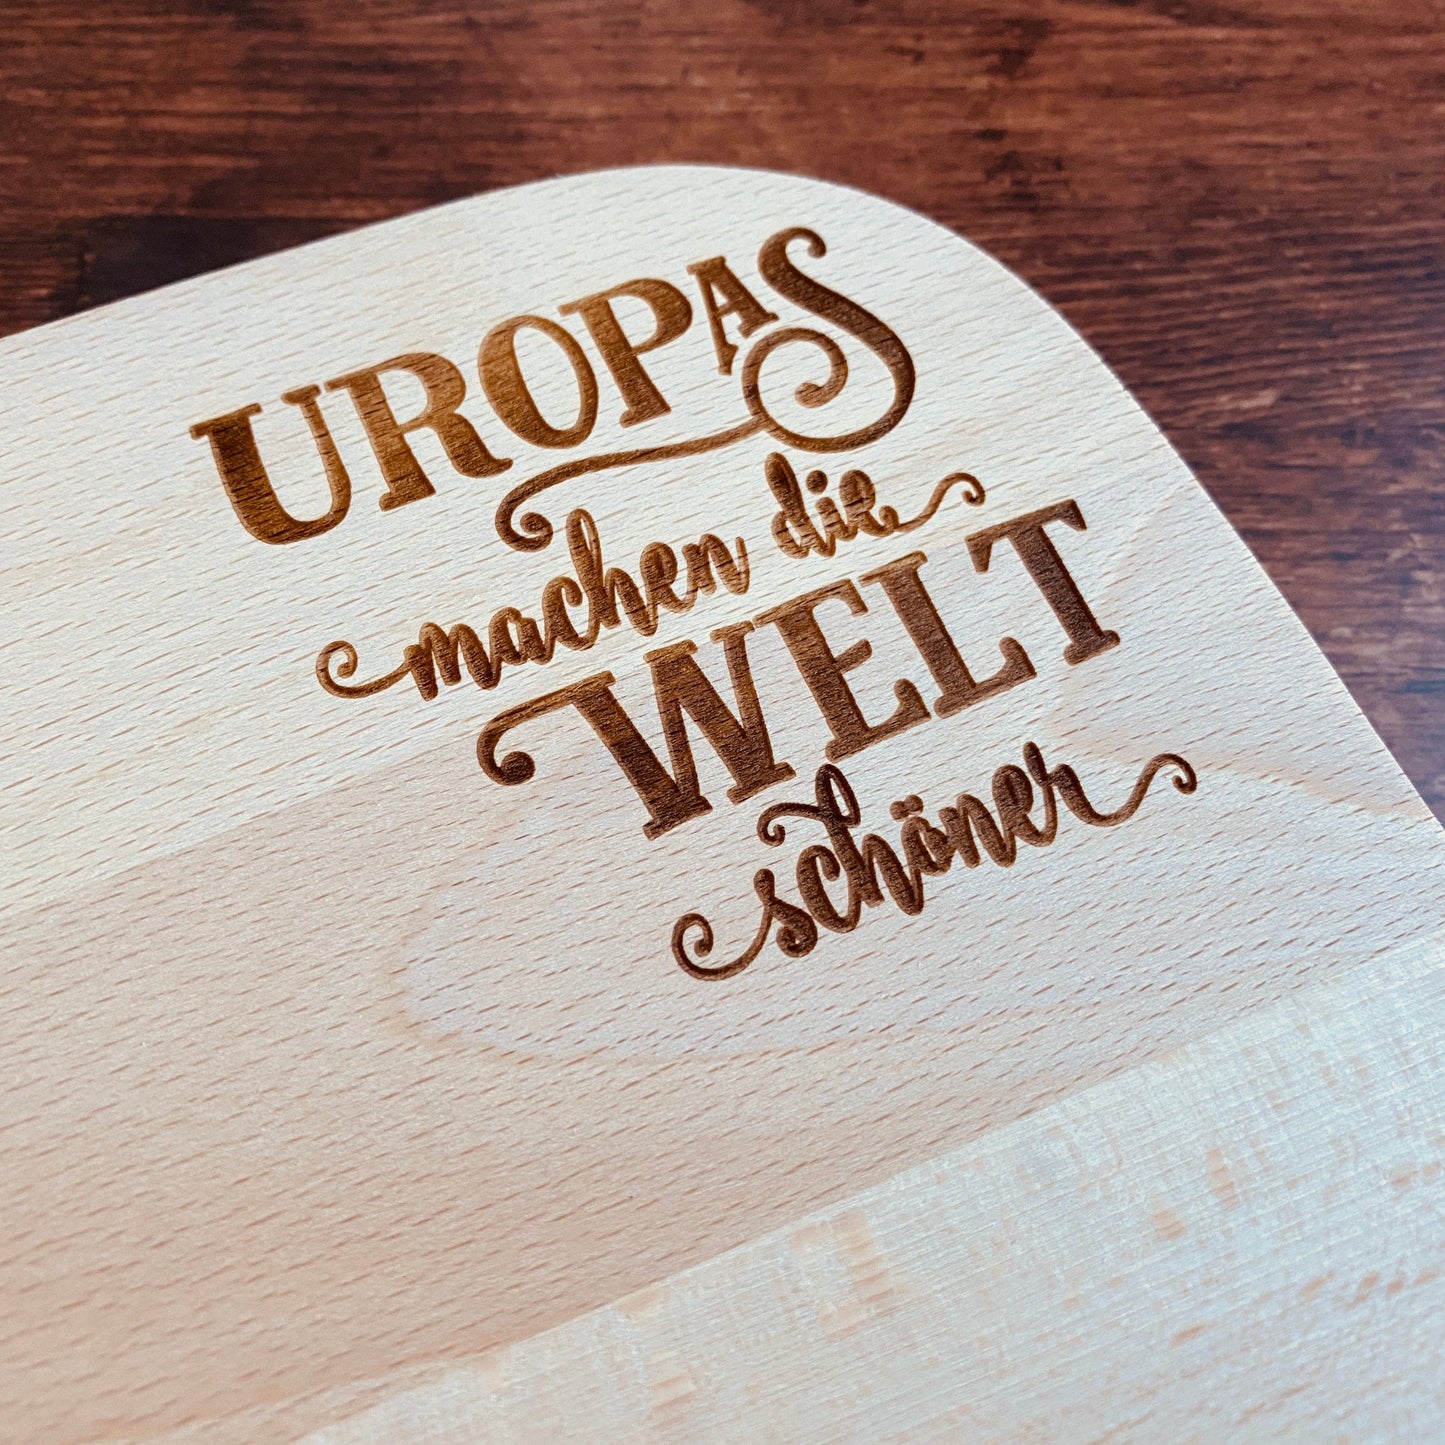 UROPAS
machen die
WELT
schöner